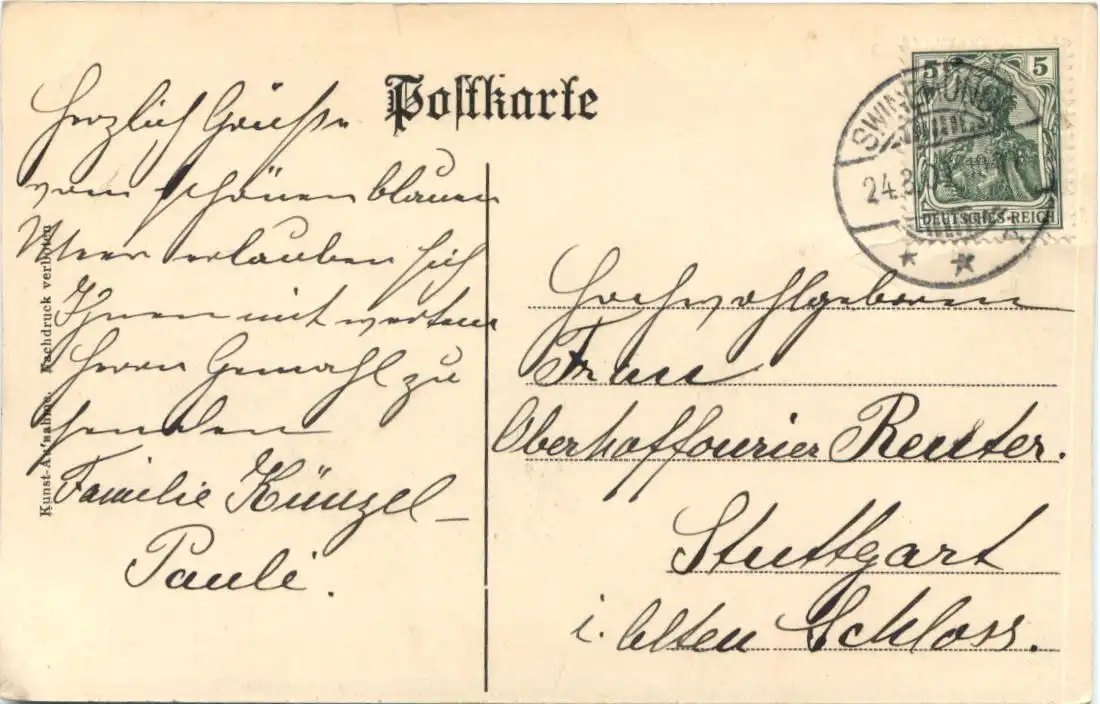 Postkarte
Herzlich Grüsse
vom schönen blauen
Meer erlauben sich
Ihnen mit werten
Herrn Gemahl zu
senden
Familie Künzel-
Pauli.
Kunst-Aufnahme. Nachdruck verboten
5 5
DEUTSCHES REICH
SWINEMÜNDE
24.8.09
Hochwohlgeboren
Frau
Oberhoffourier Reuter.
Stuttgart
i. Alten Schloss.